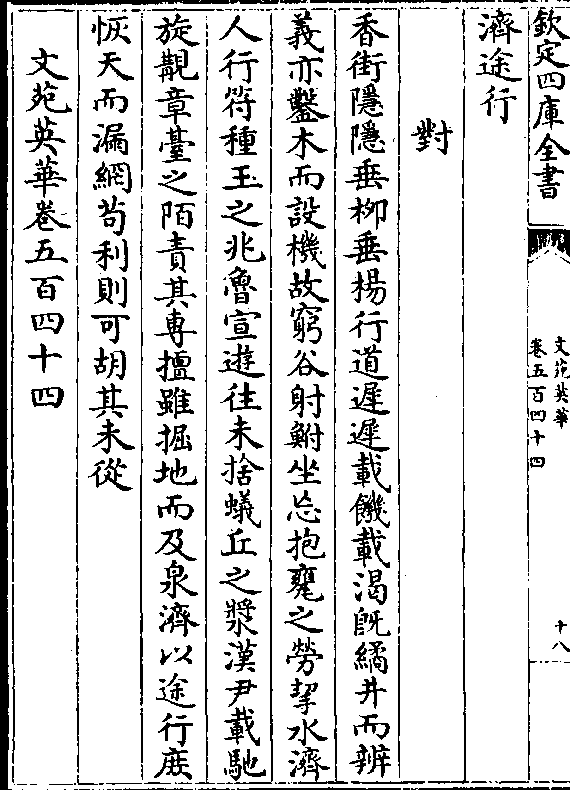 欽定四庫全書
文苑英華
卷五百四十四
十八
濟途行
對
香街隱隱垂柳垂楊行道遲遲載饑載渴旣繘井而辨
義亦鑿木而設機故窮谷射鮒坐忘抱甕之勞挈水濟
人行符種玉之兆魯宣遊往未捨蟻丘之漿漢尹載馳
旋覩章臺之陌責其專擅雖掘地而及泉濟以途行庻
恢天而漏網苟利則可胡其未從
文苑英華卷五百四十四